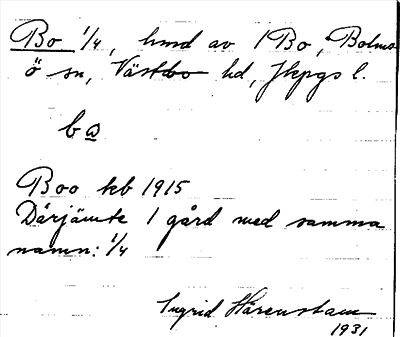 Bo 1/4, hmd av 1 Bo, Bolms
ö sn, Västbo hd, Jkpgs l.
b a
Boo kb 1915
Därjämte 1 gård med samma
namn: 1/4
Ingrid Härenstam
1931